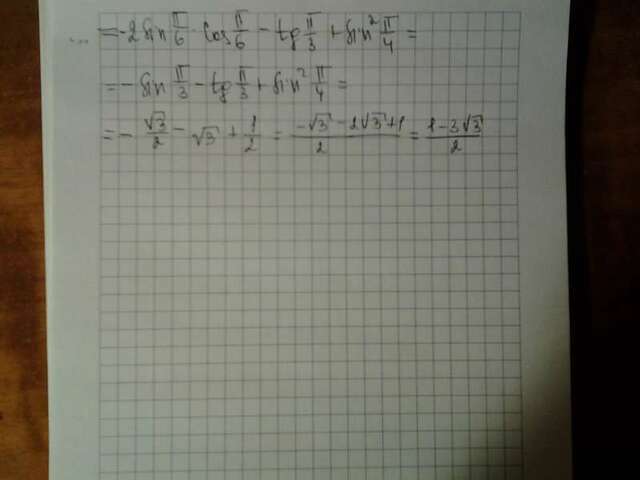 ... = -2 sin π/6 · cos π/6 - tg π/3 + sin² π/4 =
= - sin π/3 - tg π/3 + sin² π/4 =
= - √3/2 - √3 + 1/2 = (-√3 - 2√3 + 1)/2 = (1 - 3√3)/2